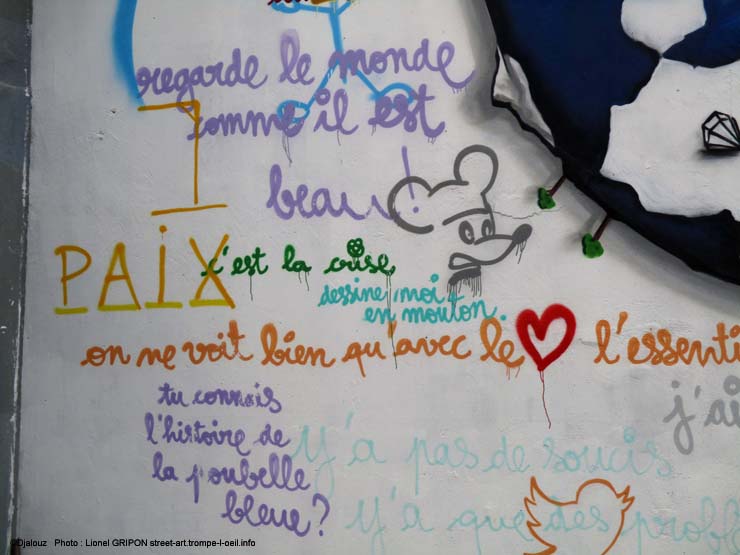 regarde le monde
comme il est
beau!
PAIX
c'est la crise
dessine moi
en mouton.
on ne voit bien qu'avec le l'essenti
j'ai
tu connais
l'histoire de
la poubelle
bleue?
y'a pas de soucis
y'a que des probl
©Djalouz Photo : Lionel GRIPON street-art.trompe-l-oeil.info